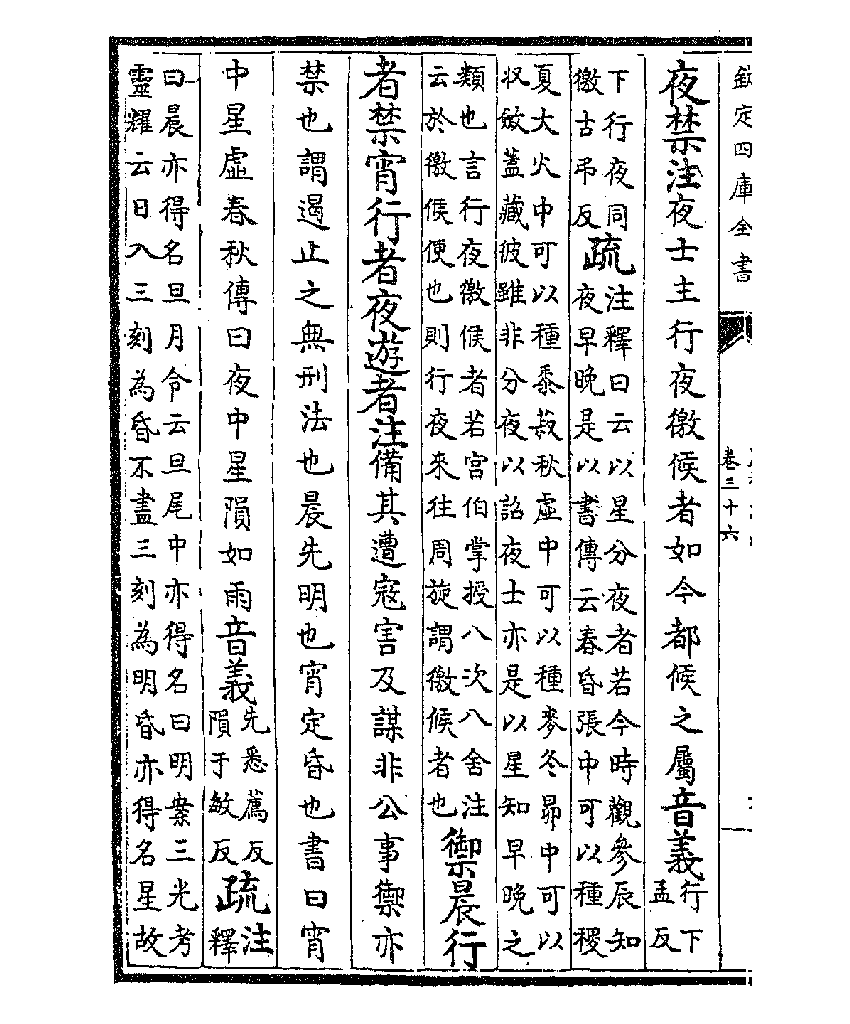 欽定四庫全書
卷三十六
夜禁注夜士主行夜徼候者如今都候之屬音義行下
孟反
下行夜同
徼古弔反
疏
注釋曰云以星分夜者若今時觀參辰知
夜早晚是以書傳云春昏張中可以種稷
夏大火中可以種黍菽秋虛中可以種麥冬昴中可以
収斂蓋藏彼雖非分夜以詔夜士亦是以星知早晚之
類也言行夜徼候者若宫伯掌授八次八舍注
云於徼候便也則行夜來往周旋謂徼候者也
禦晨行
者禁宵行者夜遊者注備其遭寇害及謀非公事禦亦
禁也謂遏止之無刑法也晨先明也宵定昏也書曰宵
中星虛春秋傳曰夜中星隕如雨音義
先悉薦反
隕于敏反
疏
注
釋
曰晨亦得名旦月令云旦尾中亦得名曰明案三光考
靈耀云日入三刻為昏不盡三刻為明昏亦得名星故